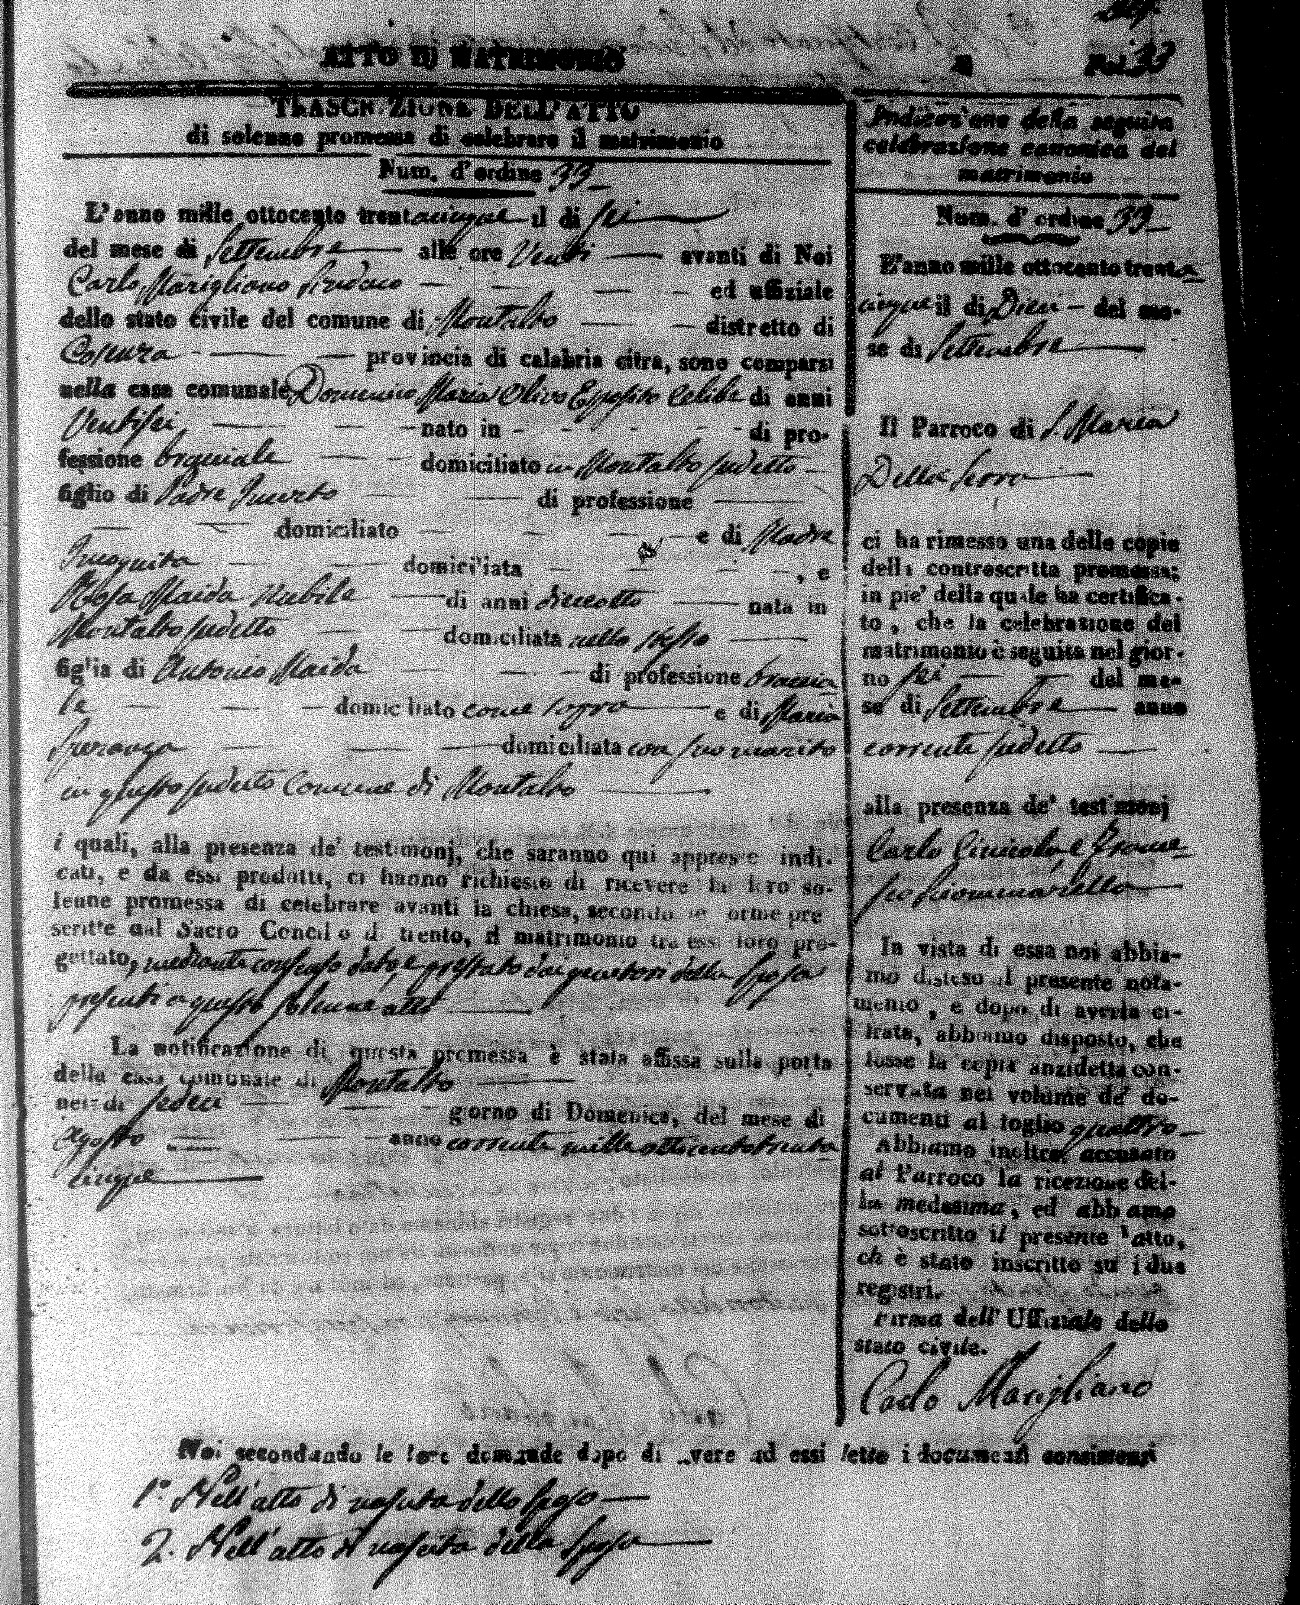 ATTO DI MATRIMONIO
33
TRASCRIZIONE DELL'ATTO
di solenne promessa di celebrare il matrimonio
Num. d'ordine 33
L'anno mille ottocento trentacinque il di sei
del mese di Settembre alle ore Venti avanti di Noi
Carlo Marigliano Sindaco ed uffiziale
dello stato civile del comune di Montalto distretto di
Cosenza provincia di calabria citra, sono comparsi
nella casa comunale Domenico Maria Olivo Esposito Celibe di anni
Ventisei nato in di pro-
fessione braciale domiciliato in Montalto sudetto
figlio di Padre Incerto di professione
domiciliato e di Madre
Incognita domiciliata , e
Rosa Maida Nubile di anni dieciotto nata in
Montalto sudetto domiciliata nello stesso
figlia di Antonio Maida di professione braccia
le domiciliato come sopra e di Maria
Speranza domiciliata con suo marito
in questo sudetto Comune di Montalto
i quali, alla presenza de' testimonj, che saranno qui appresso indi-
cati, e da essi prodotti, ci hanno richiesto di ricevere la loro so-
lenne promessa di celebrare avanti la chiesa, secondo le forme pre
scritte dal Sacro Concilio di trento, il matrimonio tra essi loro pro-
gettato, mediante consenso dato, e prestato dai genitori della sposa
presenti a questo solenne atto
La notificazione di questa promessa è stata affissa sulla porta
della casa comunale di Montalto
nel di sedeci giorno di Domenica, del mese di
Agosto anno corrente mille ottocento trenta
cinque
Indicazione della seguita
celebrazione canonica del
matrimonio
Num. d'ordine 33
L'anno mille ottocento trenta
cinque il di Dieci del me-
se di Settembre
Il Parroco di S. Maria
Della Serra
ci ha rimesso una delle copie
della controscritta promessa;
in pie' della quale ha certifica-
to, che la celebrazione del
matrimonio è seguita nel gior-
no sei del me-
se di Settembre anno
corrente sudetto
alla presenza de' testimonj
Carlo
In vista di essa noi abbia-
mo disteso il presente nota-
mento, e dopo di averla ci-
frata, abbiamo disposto, che
fosse la copia anzidetta con-
servata nel volume de' do-
cumenti al foglio quattro
Abbiamo inoltre accusato
al Parroco la ricezione del-
la medesima, ed abbiamo
sottoscritto il presente atto,
ch è stato inscritto su i due
registri.
Firma dell' Uffiziale dello
stato civile.
Carlo Marigliano
Noi secondando le loro domande dopo di avere ad essi letto i documenti consistenti
1.° Nell'atto di nascita dello sposo
2. Nell'atto di nascita della sposa